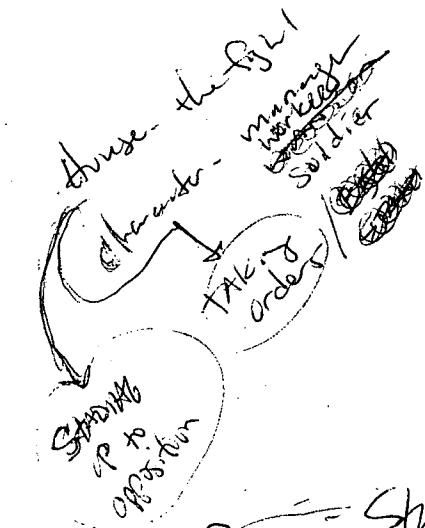 - the fight
Character -
manager
worker
Soldier
TAKing
orders
STANDING
up to
opposition
Sh